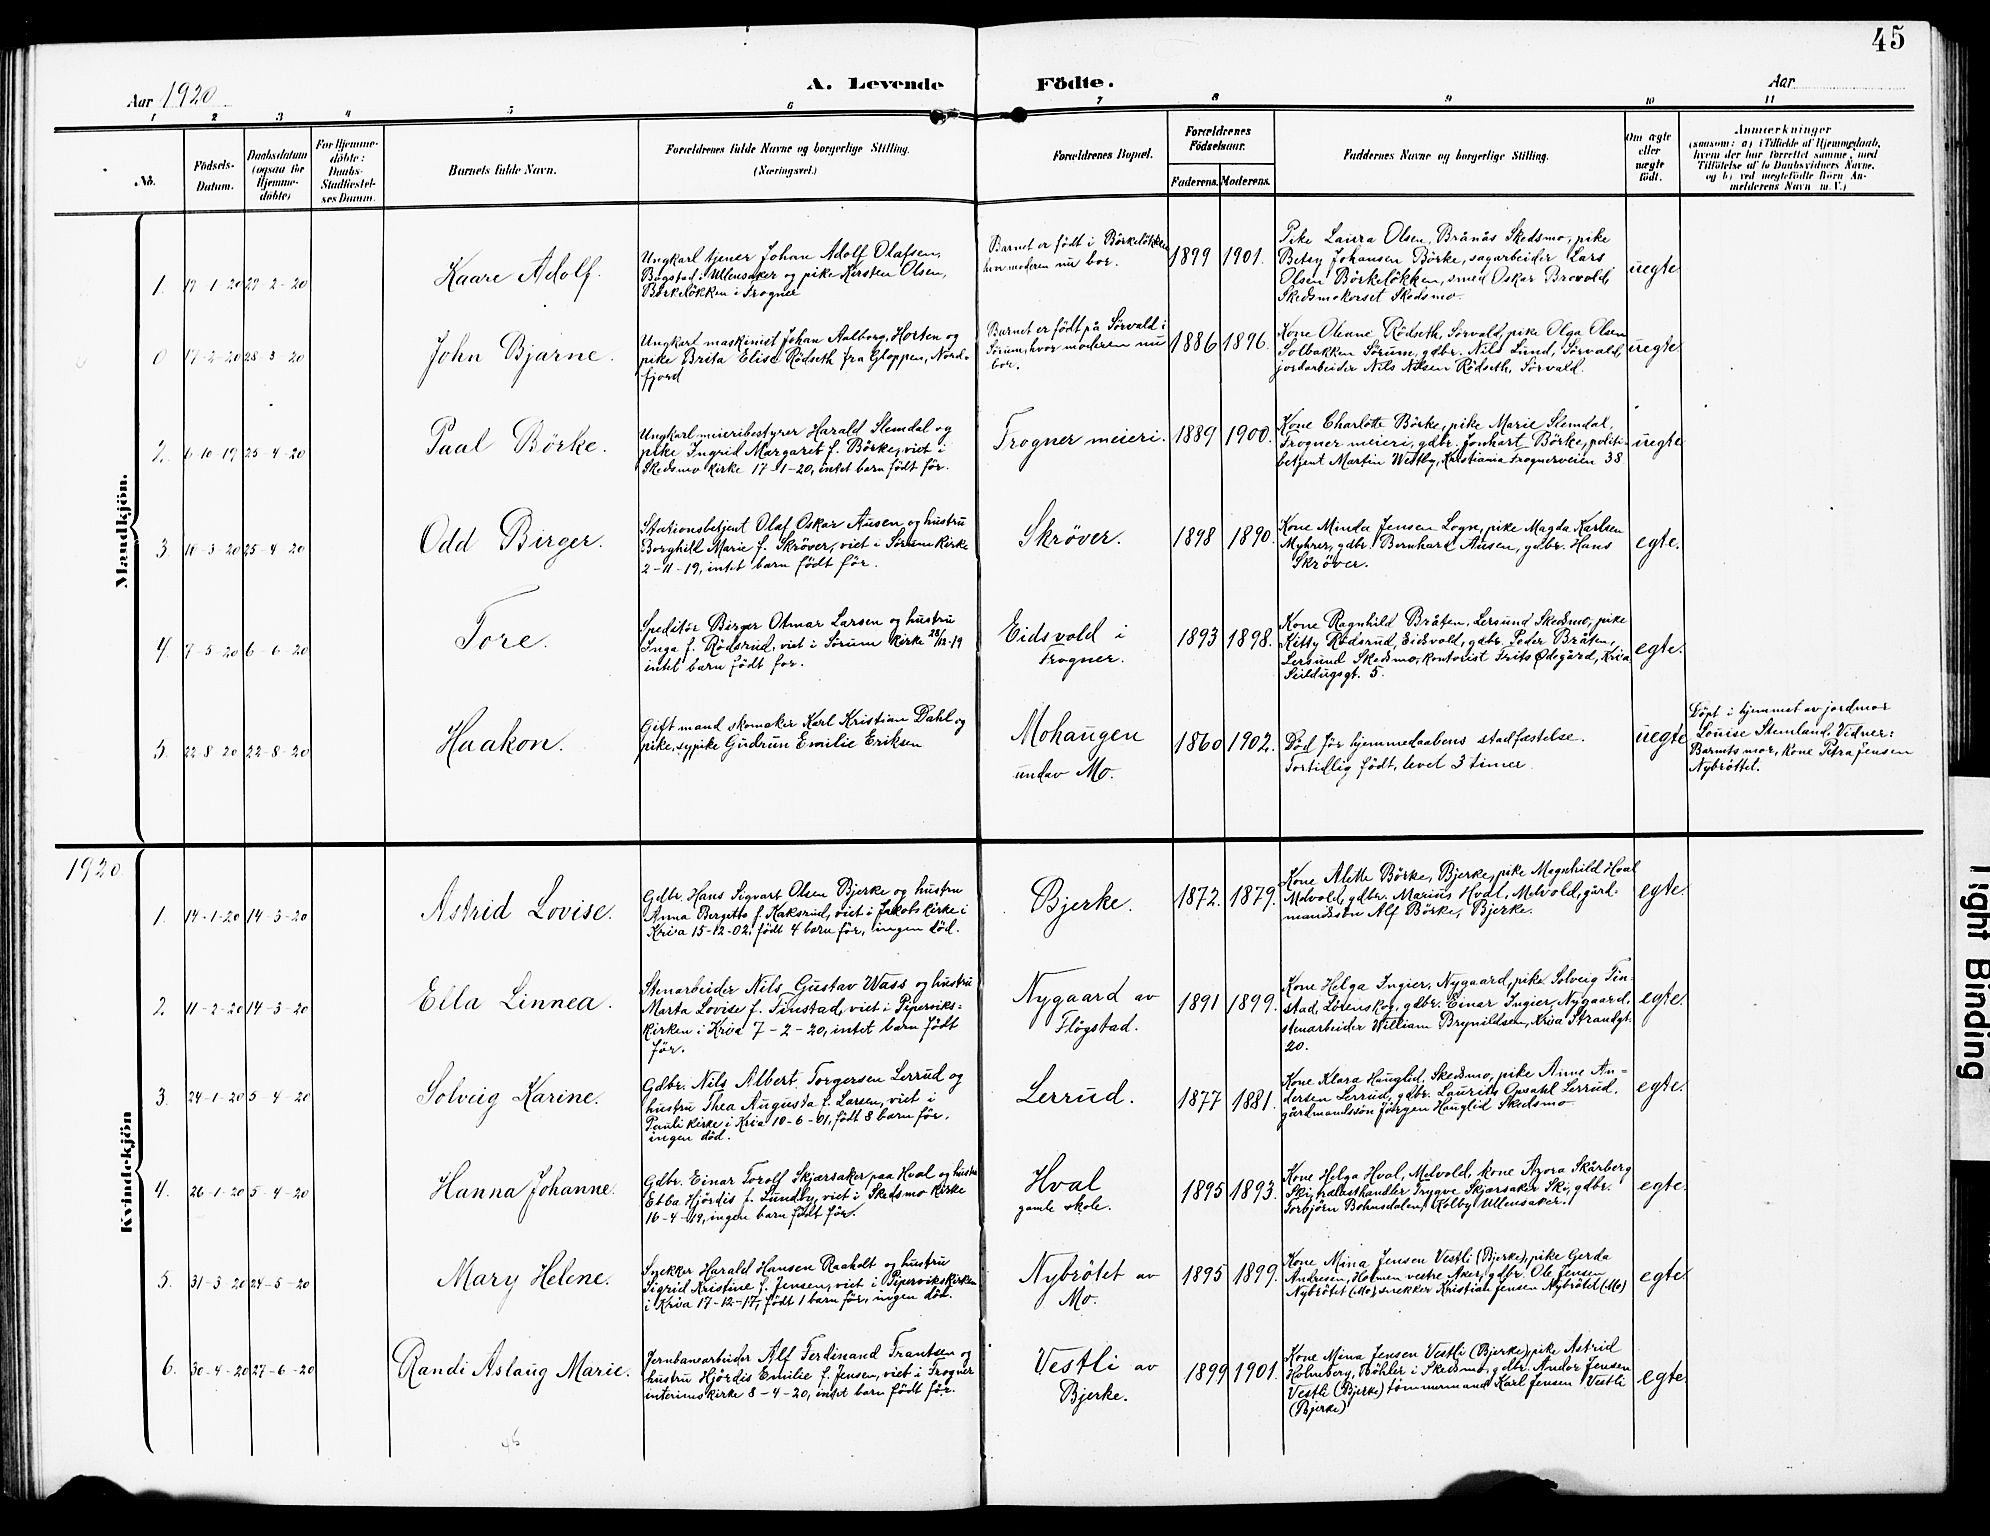 45
Aar 1920
A. Levende
Födte.
Aar
1
2
3
4
5
6
7
8
9
10
11
No.
Födsels-
Datum.
Daabsdatum
(ogsaa for
Hjemme-
döbte)
For Hjemme-
döbte:
Daabs-
Stadfæstel-
ses Datum.
Barnets fulde Navn.
Forældrenes fulde Navne og borgerlige Stilling.
(Næringsvei.)
Forældrenes Bopæl.
Forældrenes
Födselsaar.
Faderens.
Moderens.
Faddernes Navne og borgerlige Stilling.
Om ægte
eller
uægte
födt.
Anmærkninger
(saasom: a) i Tilfælde af Hjemmedaab,
hvem der har forrettet samme, med
Tilföielse af to Daabsvidners Navne,
og b) ved uægtefödte Börn An-
melderens Navn m. V.)
Mandkjön.
1.
17-1-20
27-2-20
Kaare Adolf.
Ungkarl tjener Johan Adolf Olafsen,
Bogstad i Ullensaker og pike Kirsten Olsen,
Börkelökken i Frogner
Barnet er født i Börkelökken
hvor moderen nu bor.
1899
1901.
Pike Laura Olsen, Brånås Skedsmo, pike
Betsy Johansen Börke, sagarbeider Lars
Olsen Börkelökken, smed Oskar Brovold,
Skedsmokorset Skedsmo.
uegte
0
17-2-20
28-3-20
John Bjarne.
Ungkarl maskinist Johan Aalborg, Horten og
pike Brita Elise Rödseth fra Gloppen, Nord-
fjord
Barnet er født på Sörvald i
Sörum, hvor moderen nu
bor.
1886
1896.
Kone Oliane Rödseth, Sörvald, pike Olga Olsen
Solbakken Sörum, gdbr. Nils Lund, Sörvald,
jordarbeider Nils Nilsen Rödseth, Sörvald.
uegte
2.
6-10-19
25-4-20
Paal Börke.
Ungkarl meieribestyrer Harald Slemdal og
pike Ingrid Margaret f. Börke, viet i
Skedsmo kirke 17-1-20, intet barn født før.
Frogner meieri.
1889
1900.
Kone Charlotte Börke, pike Marie Slemdal,
Frogner meieri, gdbr. Jonhart Börke, politi-
betjent Martin Westby, Kristiania Frognerveien 38
uegte
3.
18-3-20
25-4-20
Odd Birger.
Stationsbetjent Olaf Oskar Ausen og hustru
Borghill Marie f. Skröver, viet i Sörum kirke
2-11-19, intet barn født før.
Skröver.
1898
1890.
Kone Minda Jensen Logn, pike Magda Karlsen
Myhrer, gdbr. Bernhard Ausen, gdbr. Hans
Skröver.
egte.
4
7-5-20
6-6-20
Tore.
Speditør Birger Otmar Larsen og hustru
Inga f. Rödsrud, viet i Sörum kirke 28/12-19
intet barn født før.
Eidsvold i
Frogner.
1893
1898.
Kone Ragnhild Bråten, Lersund Skedsmo, pike
Kitty Rödsrud, Eidsvold, gdbr. Peder Bråten,
Lersund Skedsmo, kontorist Frits Ødegård, Kria
Seildugsgt. 5.
egte.
5.
22-8-20
22-8-20
Haakon.
Gift mand skomaker Karl Kristian Dahl og
pike, sypike Gudrun Emilie Eriksen
Mohaugen
undav Mo.
1860
1902.
Död før hjemmedaabens stadfæstelse.
Fortidlig født, levet 3 timer.
uegte
Döpt i hjemmet av jordmor
Louise Stenland, Vidner:
Barnets mor, kone Petra Jensen
Nybröttet.
1920
Kvindekjön
1.
14-1-20
14-3-20
Astrid Lovise.
Gdbr. Hans Sigvart Olsen Bjerke og hustru
Anna Bergitte f. Kaksrud, viet i Jakobs kirke i
Kria 15-12-02, født 4 barn før, ingen död.
Bjerke.
1872.
1879.
Kone Alette Börke, Bjerke, pike Magnhild Hval
Melvold, gdbr. Marius Hval, Melvold, gård-
mandssön Alf Börke, Bjerke.
egte.
2.
11-2-20
14-3-20
Ella Linnea.
Stenarbeider Nils Gustav Wass og hustru
Marta Lovise f. Finstad, viet i Piperviks-
kirken i Kria 7-2-20, intet barn født
før.
Nygaard av
Flögstad.
1891
1899.
Kone Helga Ingier, Nygaard, pike Solveig Fin-
stad, Lörenskog, gdbr. Einar Ingier, Nygaard,
stenarbeider William Brynildsen, Kria Strandgt.
20.
egte.
3.
24-1-20
5-4-20
Solveig Karine.
Gdbr. Nils Albert Torgersen Lerrud og
hustru Thea Augusta f. Larsen, viet i
Pauli kirke i Kria 10-6-01, født 8 barn før,
ingen död.
Lerrud.
1877
1881.
Kone Klara Hauglid, Skedsmo, pike Anne An-
dersen Lerrud, gdbr. Laurits Opsahl Lerrud,
gårdmandssön Jörgen Hauglid Skedsmo
egte.
4.
26-1-20
5-4-20
Hanna Johanne.
Gdbr. Einar Torolf Skjærsaker paa Hval og hustru
Ebba Hjördis f. Lundby, viet i Skedsmo kirke
16-4-19, ingen barn født før.
Hval
gamle skole.
1895
1893.
Kone Helga Hval, Melvold, kone Azora Skårberg
Ski, trælasthandler Trygve Skjærsaker Ski, gdbr.
Torbjörn Bohnsdalen, Kolby Ullensaker.
egte.
5.
31-3-20
24-5-20
Mary Helene.
Snekker Harald Hansen Raaholt og hustru
Sigrid Kristine f. Jensen, viet i Piperviks kirken
i Kria 17-12-17, født 1 barn før, ingen död.
Nybrötet av
Mo.
1895
1899.
Kone Mina Jensen Vestli (Bjerke), pike Gerda
Andresen, Holmen vestre Aker, gdbr. Ole Jensen
Nybrötet (Mo), snekker Kristian Jensen Nybrötet (Mo)
egte.
6.
30-4-20
27-6-20
Randi Aslaug Marie.
Jernbanearbeider Alf Ferdinand Frantsen og
hustru Hjördis Emilie f. Jensen, viet i Frogner
interimskirke 8-4-20, intet barn født før.
Vestli av
Bjerke.
1899
1901.
Kone Mina Jensen Vestli (Bjerke), pike Astrid
Holmberg, Böhler i Skedsmo, gdbr. Andor Jensen
Vestli (Bjerke) tømmermand Karl Jensen Vestli
(Bjerke)
egte.
Tight Binding